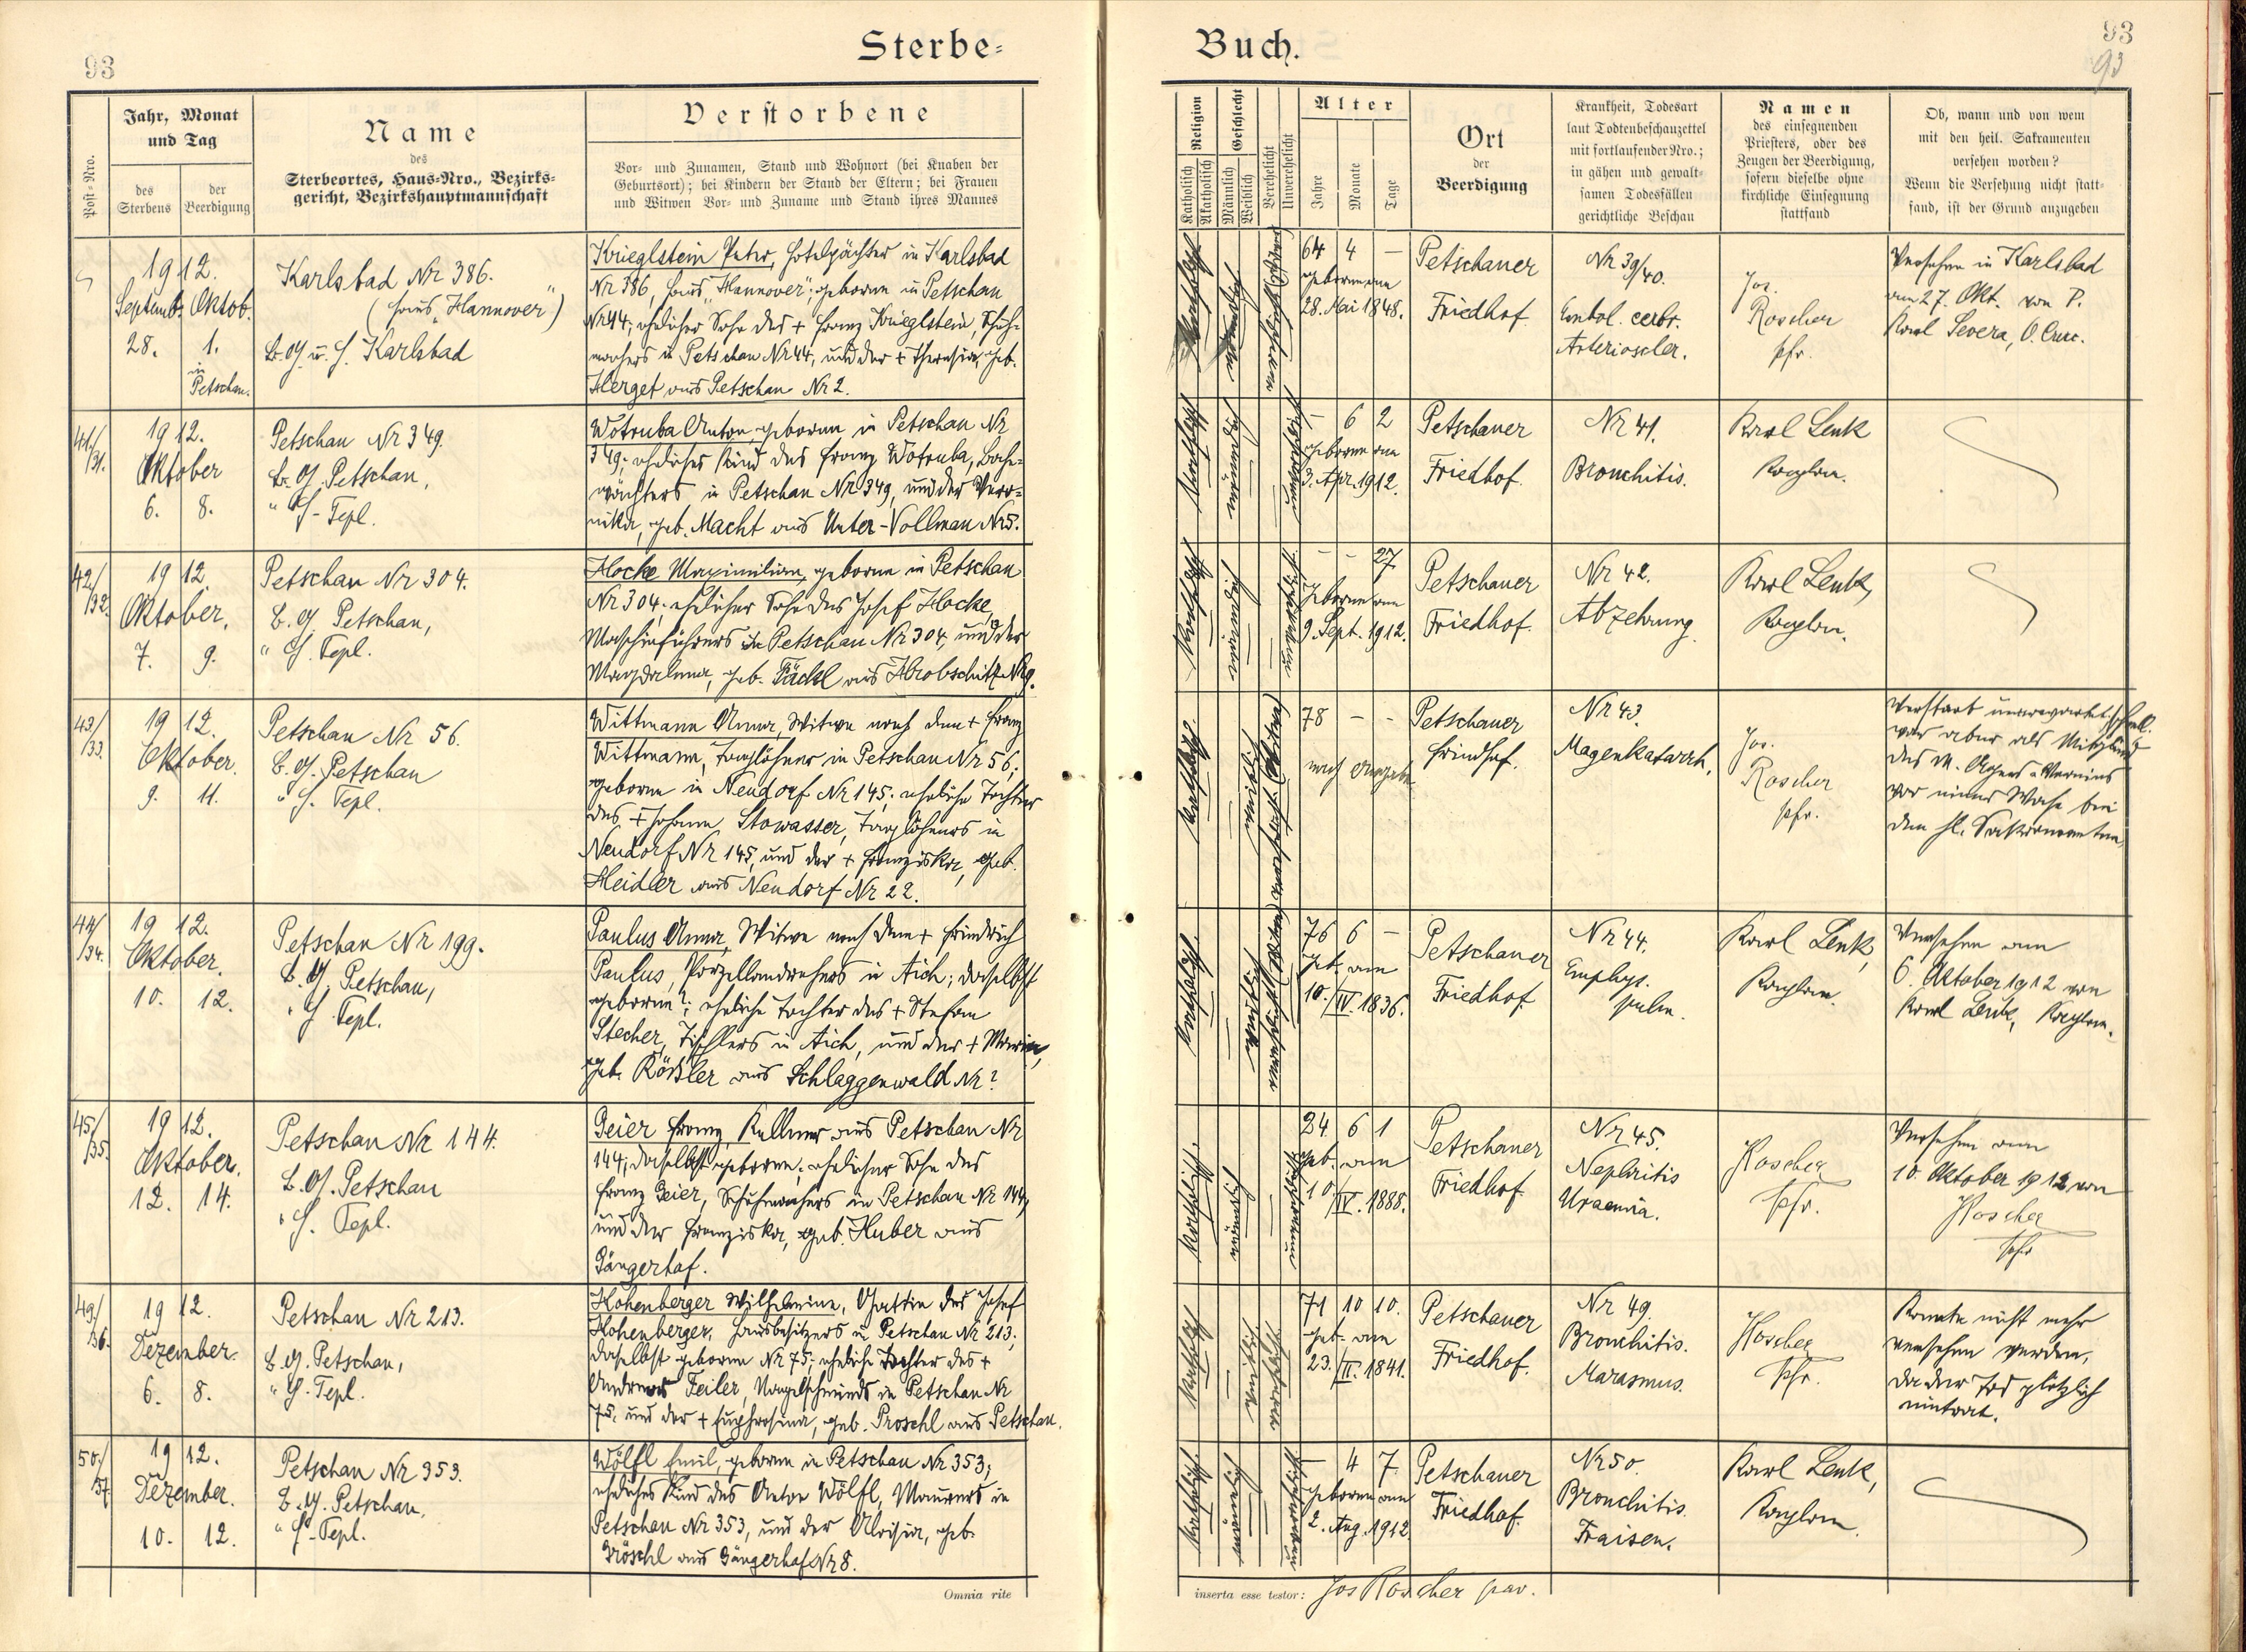 93
Sterbe=
Buch.
93
93
Post-Nro.
Jahr, Monat
und Tag
des
Sterbens
der
Beerdigung
Name
des
Sterbeortes, Haus-Nro., Bezirks-
gericht, Bezirkshauptmannschaft
Verstorbene
Vor- und Zunamen, Stand und Wohnort (bei Knaben der
Geburtsort); bei Kindern der Stand der Eltern; bei Frauen
und Witwen Vor- und Zuname und Stand ihres Mannes
Religion
Katholisch
Akatholisch
Geschlecht
Männlich
Weiblich
Verehelicht
Unverehelicht
Alter
Jahre
Monate
Tage
Ort
der
Beerdigung
Krankheit, Todesart
laut Todtenbeschauzettel
mit fortlaufender Nro.;
in gähen und gewalt-
samen Todesfällen
gerichtliche Beschau
Namen
des einsegnenden
Priesters, oder des
Zeugen der Beerdigung,
sofern dieselbe ohne
kirchliche Einsegnung
stattfand
Ob, wann und von wem
mit den heil. Sakramenten
versehen worden?
Wenn die Versehung nicht statt-
fand, ist der Grund anzugeben
1912.
Septemb. Oktob.
28. 1.
in
Petschau.
Karlsbad Nr 386.
(Haus "Hannover")
Karlsbad
Krieglstein Peter, Hotelpächter in Karlsbad
Nr 386, Haus "Hannover"; geboren in Petschau
Nr 44; ehelicher Sohn des + Franz Krieglstein, Schuh-
machers in Petschau Nr 44, und der + Theresia, geb.
Herget aus Petschau Nr 2.
katholisch
männlich
verehelicht
64 4 –
geboren am
28. Mai 1848.
Petschauer
Friedhof.
Nr 39/40.
Embol. cerbr.
Arterioscler.
Jos.
Roscher
Pfr.
Versehen in Karlsbad
am 27. Okt. von P.
Karl Severa, O. Cruc.
41/31.
1912.
Oktober
6. 8.
Petschau Nr 349.
B. G. Petschau,
" H. Tepl.
Wotruba Anton, geboren in Petschau Nr
349; eheliches Kind des Franz Wotruba, Bahn-
wächters in Petschau Nr 349, und der Vero-
nika, geb. Macht aus Unter-Vollmau Nr 5.
katholisch
männlich
unverehelicht
– 6 2
geboren am
3. Apr. 1912.
Petschauer
Friedhof.
Nr 41.
Bronchitis.
Karl Lenk
Kaplan.
42/32.
1912
Oktober.
7. 9.
Petschau Nr 304.
B. G. Petschau,
" H. Tepl.
Hocke Maximilian, geboren in Petschau
Nr 304; ehelicher Sohn des Josef Hocke,
Maschinführers in Petschau Nr 304, und der
Magdalena, geb. Fäckl aus Hrobschitz Nr 9.
katholisch
männlich
unverehelicht
– – 27
Geboren am
9. Sept. 1912.
Petschauer
Friedhof.
Nr 42.
Abzehrung.
Karl Lenk,
Kaplan.
43/33.
1912.
Oktober.
9. 11.
Petschau Nr 56.
B. G. Petschau
" H. Tepl.
Wittmann Anna, Witwe nach dem + Franz
Wittmann, Taglöhner in Petschau Nr 56;
geboren in Neudorf Nr 145; eheliche Tochter
des + Johann Stowasser, Taglöhners in
Neudorf Nr 145, und der + Franziska, geb.
Heidler aus Neudorf Nr 22.
katholisch.
weiblich
verehelicht (Witwe)
78 – –
nach Angabe
Petschauer
Friedhof.
Nr 43.
Magenkatarrh.
Jos.
Roscher
Pfr.
Verstarb unerwartet schnell.
war aber als Mitglied
des M. Agnes-Vereins
vor einer Woche bei
den hl. Sakramenten.
44/34.
1912.
Oktober.
10. 12.
Petschau Nr 199.
B. G. Petschau,
" H. Tepl.
Paulus Anna, Witwe nach dem + Friedrich
Paulus, Porzellandrehers in Aich; daselbst
geboren?; eheliche Tochter des + Stefan
Stecher, Tischlers in Aich, und der + Maria,
geb. Rößler aus Schlaggenwald Nr ?
katholisch.
weiblich
verehelicht (Witwe)
76 6 –
Geb. am
10./IV. 1836.
Petschauer
Friedhof.
Nr 44.
Emphys.
pulm.
Karl Lenk,
Kaplan.
Versehen am
6. Oktober 1912 von
Karl Lenk, Kaplan.
45/35.
1912.
Oktober.
12. 14.
Petschau Nr 144.
B. G. Petschau
" H. Tepl.
Geier Franz, Kellner aus Petschau Nr
144; daselbst geboren; ehelicher Sohn des
Franz Geier, Schuhmachers in Petschau Nr 144,
und der Franziska, geb. Huber aus
Gängerhof.
katholisch.
männlich
unverehelicht
24 6 1
geb. am
10./IV. 1888.
Petschauer
Friedhof.
Nr 45.
Nephritis
Uraemia.
Roscher
Pfr.
Versehen am
10. Oktober 1912 von
Roscher
Pfr
49/36.
1912.
Dezember.
6. 8.
Petschau Nr 213.
B. G. Petschau,
" H. Tepl.
Hohenberger Wilhelmine, Gattin des Josef
Hohenberger, Hausbesitzers in Petschau Nr 213;
daselbst geboren Nr 75; eheliche Tochter des +
Andreas Feiler, Nagelschmieds in Petschau Nr
75, und der + Euphrosina, geb. Proschl aus Petschau.
katholisch
weiblich
verehelicht
71 10 10.
geb. am
23./II. 1841.
Petschauer
Friedhof.
Nr 49.
Bronchitis.
Marasmus.
Roscher
Pfr.
Konnte nicht mehr
versehen werden,
da der Tod plötzlich
eintrat.
50/37.
1912.
Dezember.
10. 12.
Petschau Nr 353.
B. G. Petschau,
" H. Tepl.
Wölfl Emil, geboren in Petschau Nr 353;
eheliches Kind des Anton Wölfl, Maurers in
Petschau Nr 353, und der Aloisia, geb.
Gröschl aus Gängerhof Nr 8.
katholisch.
männlich
unverehelicht
– 4 7.
geboren am
2. Aug. 1912
Petschauer
Friedhof.
Nr 50.
Bronchitis.
Fraisen.
Karl Lenk,
Kaplan.
Omnia rite
inserta esse testor: Jos Roscher par.